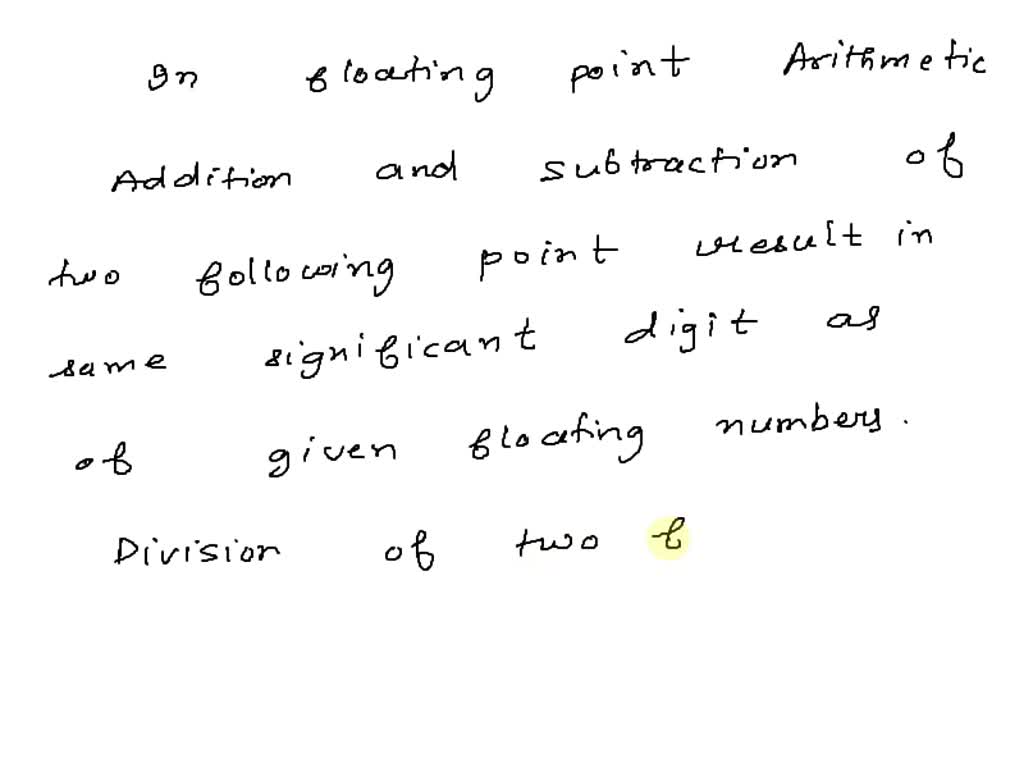 In floating point Arithmetic
Addition and subtraction of
two following point result in
same significant digit as
of given floating numbers.
Division of two f